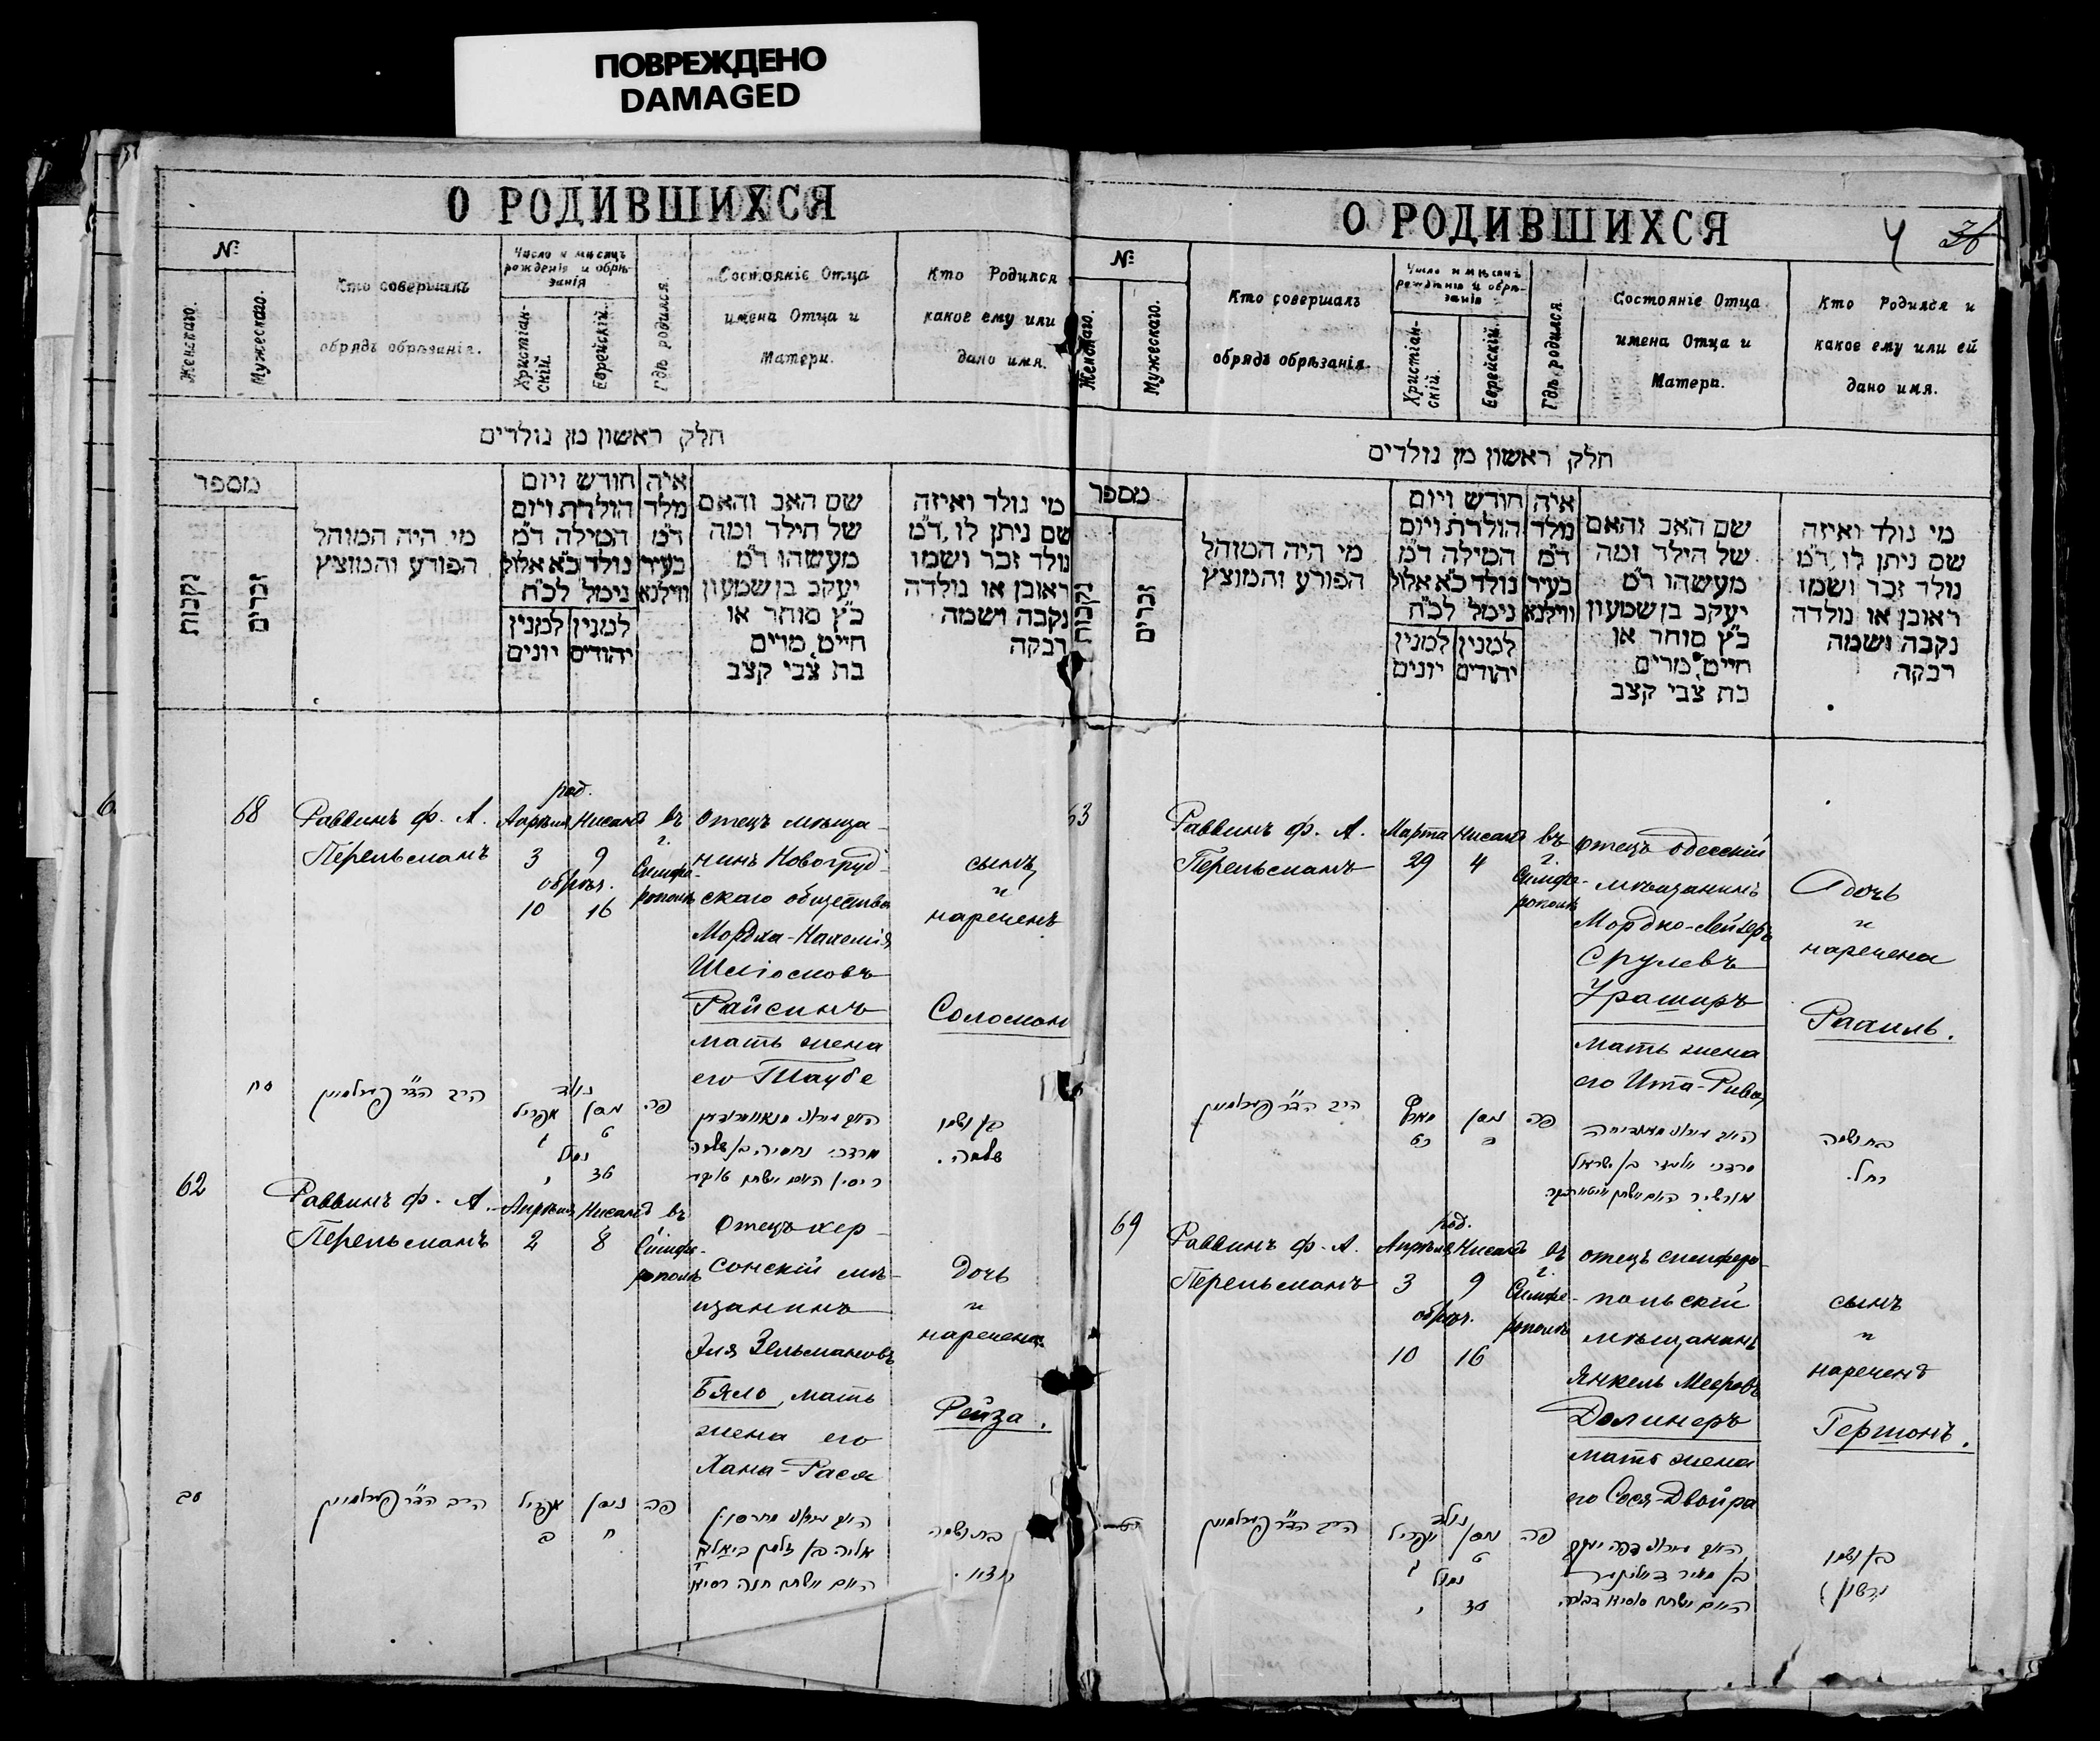 ПОВРЕЖДЕНО
DAMAGED
О РОДИВШИХСЯ
№
Женскаго.
Мужескаго.
Кто совершалъ
обрядъ обрѣзанія.
Число и мѣсяцъ
рожденія и обрѣ-
занія
Христіан-
скій.
Еврейскій.
Гдѣ родился.
Состояніе Отца
имена Отца и
Матери.
Кто Родился
какое ему или
дано имя.
חלק ראשון מן נולדים
מספר
נקבות
זכרים
מי היה המוהל
הפורע והמוצץ
חורש ויום
הולרת ויום
המילה ד"מ
נולד כ"א אלול
נימל לכ"ח
למנין
יהודים
למנין
יונים
איה
מלד
ד"מ
בעיר
ווילנא
שם האב והאם
של הילד ומה
מעשהו ד"מ
יעקב בן שמעון
כ"ץ סוחר או
חייט, מרים
בת צבי קצב
מי נולד ואיזה
שם ניתן לו, ד"מ
נולד זכר ושמו
ראובן או נולדה
נקבה ושמה
רבקה
68
Раввинъ Ф. А.
Перельманъ
род.
Апрѣля
3
обрѣз.
10
Нисанъ
9
16
въ
г.
Симфе-
рополѣ
Отецъ мѣща-
нинъ Новогруд-
скаго общества
Мордха-Нахемія
Шліомовъ
Райсинъ
мать жена
его Таубе
сынъ
и
нареченъ
Соломон
סח
הרב הד"ר פערלמאן
נולד
אפריל
ניסן
ט
נמול
פה
מרדכי נחמיה בן שלמה
בן ושמו
שלמה.
62
Раввинъ Ф. А.
Перельманъ
Апрѣля
2
Нисанъ
8
въ
г.
Симфе-
рополѣ
Отецъ хер-
сонскій мѣ-
щанинъ
Эля Зельмановъ
Бяло, мать
жена его
Хана-Рася
дочь
и
наречена
Рейза.
סב
הרב הד"ר פערלמאן
אפריל
ב
ניסן
ח
פה
אליה בן זלמן ביאלא
בת ושמה
О РОДИВШИХСЯ
4
№
Женскаго.
Мужескаго.
Кто совершалъ
обрядъ обрѣзанія.
Число и мѣсяцъ
рожденія и обрѣ-
занія
Христіан-
скій.
Еврейскій.
Гдѣ родился
Состояніе Отца
имена Отца и
Матери.
Кто Родился и
какое ему или ей
дано имя.
חלק ראשון מן נולדים
מספר
נקבות
זכרים
מי היה המוהל
הפורע והמוצץ
חורש ויום
הולרת ויום
המילה ד"מ
נולד כ"א אלול
נימל לכ"ח
למנין
יהודים
למנין
יונים
איה
מלד
ד"מ
בעיר
ווילנא
שם האב והאם
של הילד ומה
מעשהו ד"מ
יעקב בן שמעון
כ"ץ סוחר או
חייט, מרים
בת צבי קצב
מי נולד ואיזה
שם ניתן לו, ד"מ
נולד זכר ושמו
ראובן או נולדה
נקבה ושמה
רבקה
63
Раввинъ Ф. А.
Перельманъ
Марта
29
Нисанъ
4
въ
г.
Симфе-
рополѣ
Отецъ одесскій
мѣщанинъ
Мордко-Лейзеръ
Срулевъ
Ураширъ
мать жена
его Ита-Рива
дочь
и
наречена
Рахиль.
הרב הד"ר פערלמאן
כט
ניסן
פה
בת ושמה
רחל.
69
Раввинъ Ф. А.
Перельманъ
род.
Апрѣля
3
обрѣз.
10
Нисанъ
9
16
въ
г.
Симфе-
рополѣ
отецъ симферо-
польскій
мѣщанинъ
Янкель Мееровъ
Долинеръ
мать жена
его Сося-Двойра
сынъ
и
нареченъ
Гершонъ.
הרב הד"ר פערלמאן
נולד
אפריל
ניסן
ט
נמול
פה
בן ושמו
גרשון